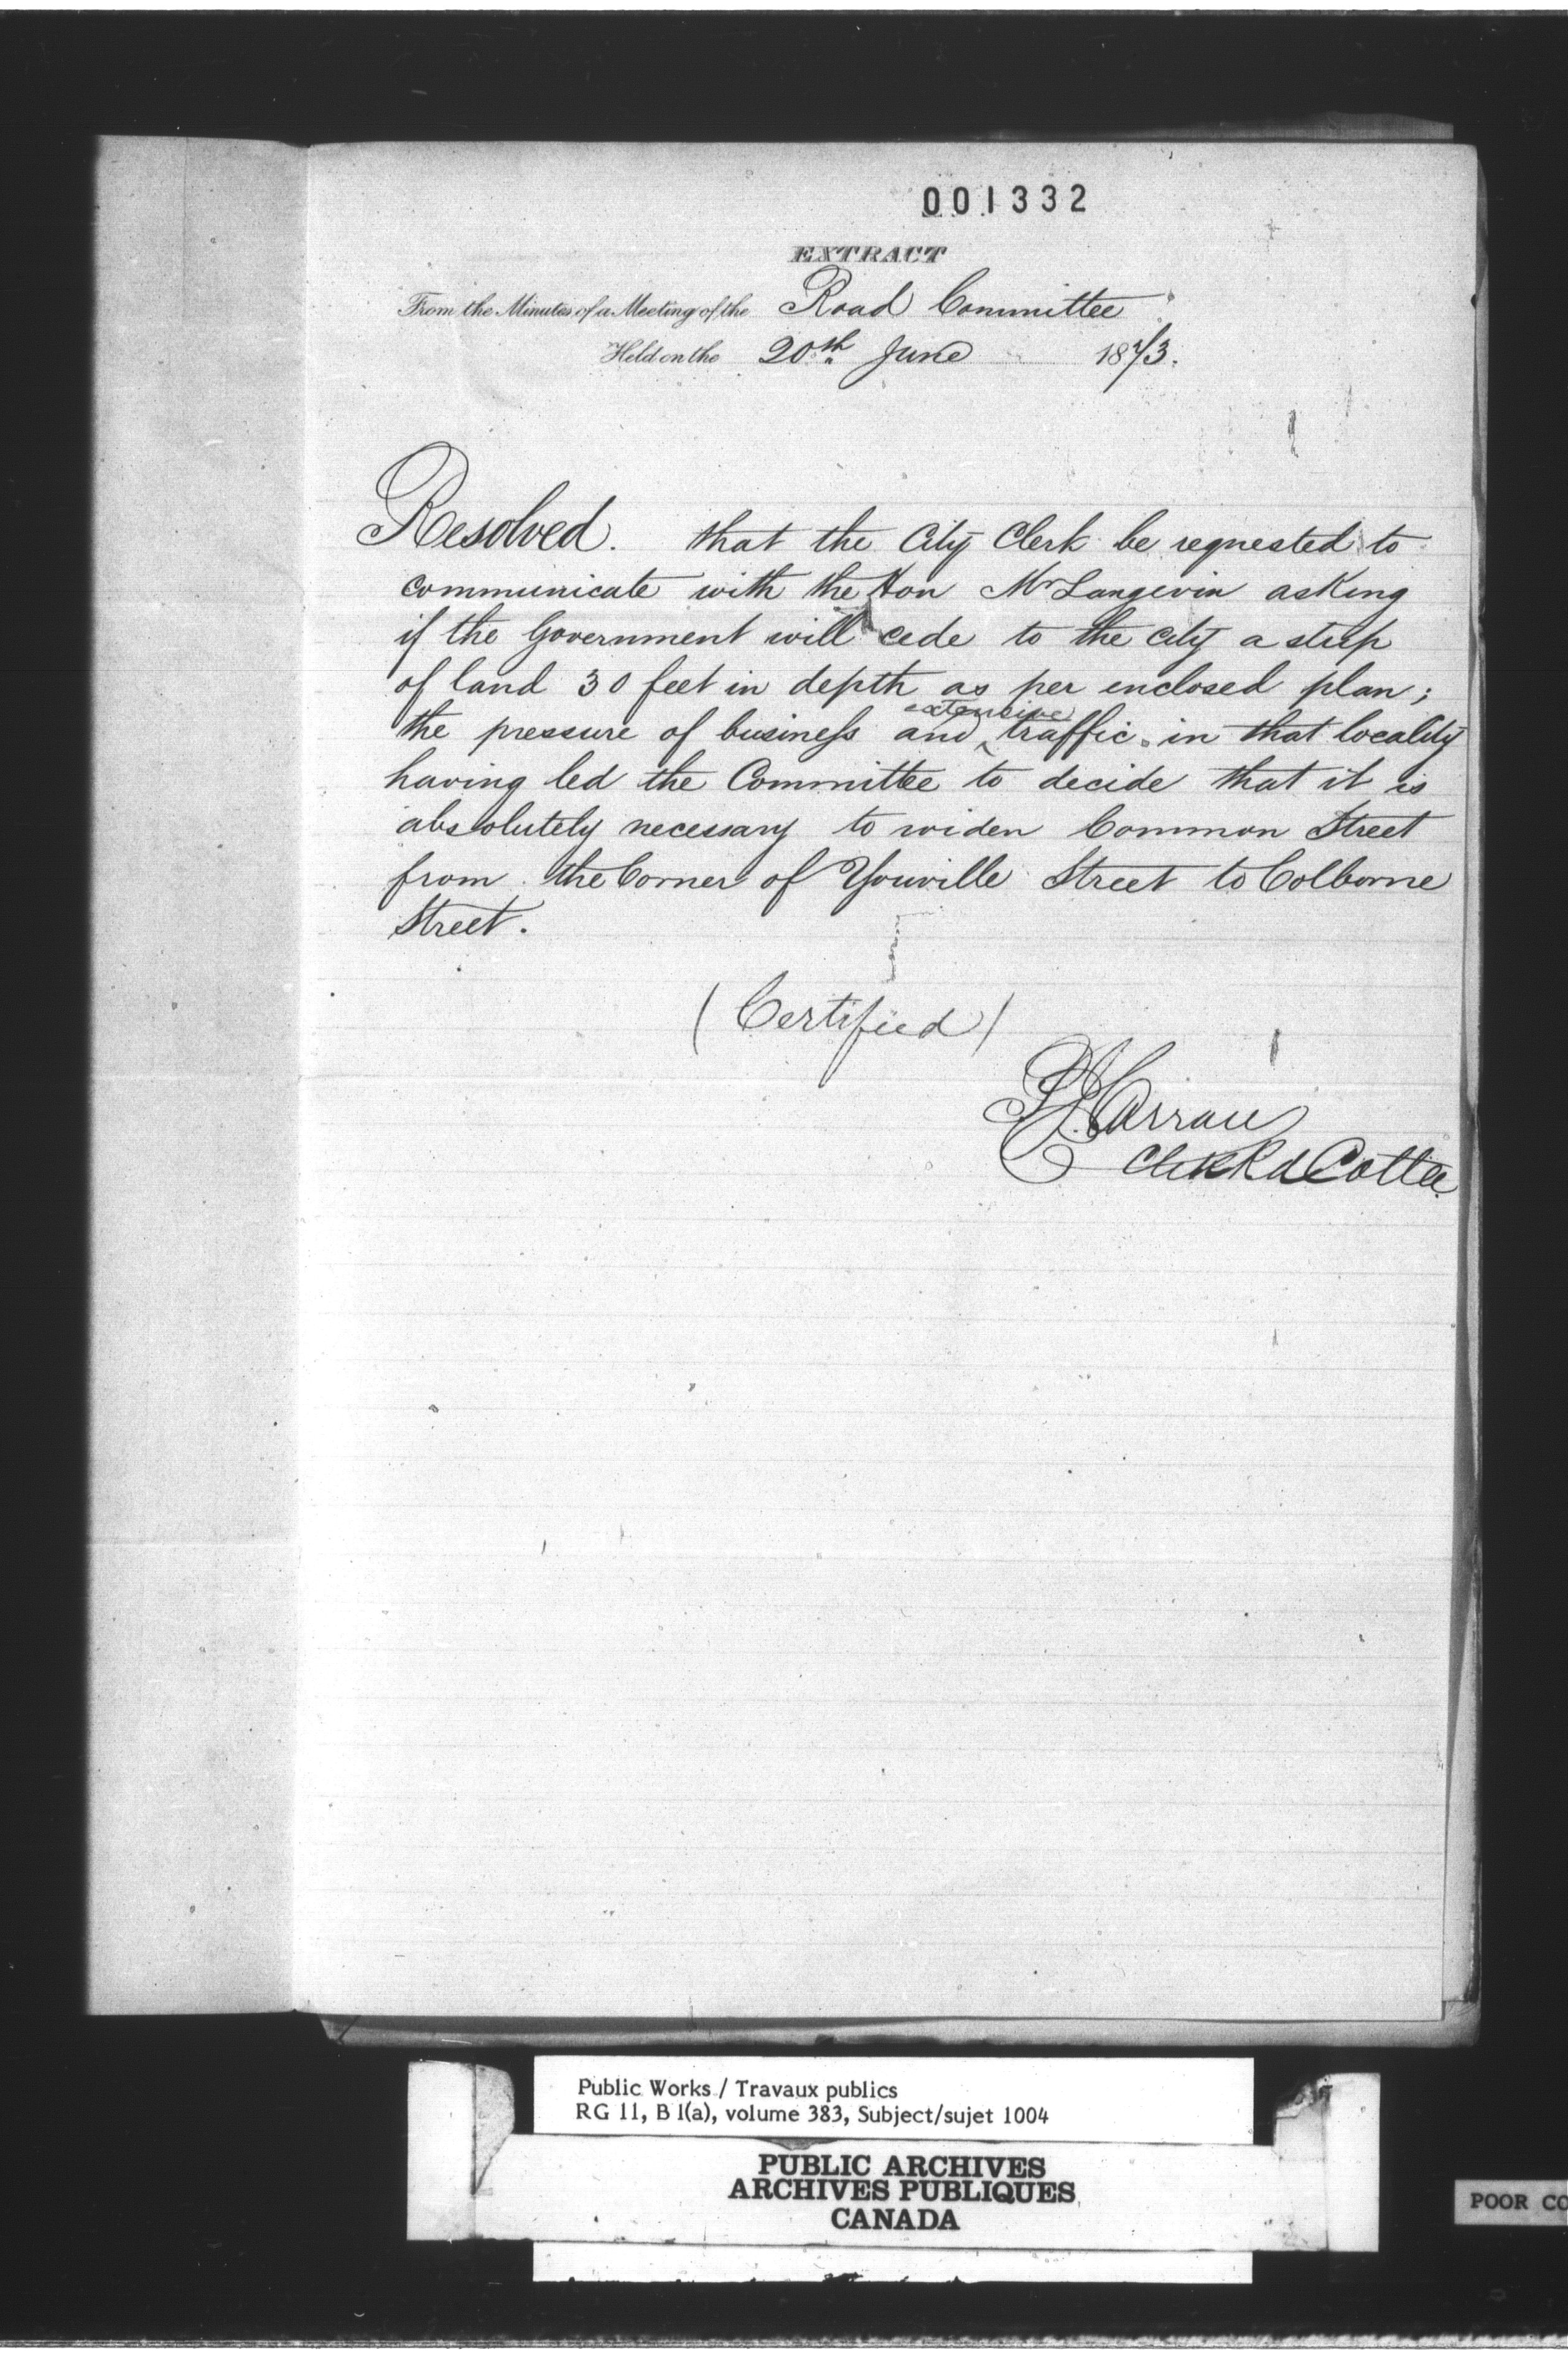 001332
EXTRACT
From the Minutes of a Meeting of the Road Committee
Held on the 20th June 1873.
Resolved. that the City Clerk be requested to
communicate with the Hon Mr Langevin asking
if the Government will cede to the city a strip
of land 30 feet in depth as per enclosed plan;
the pressure of business and extensive traffic in that locality
having led the Committee to decide that it is
absolutely necessary to widen Common Street
from the Corner of Youville Street to Colborne
Street.
(Certified)
Clerk Rd Cottee
Public Works / Travaux publics
RG 11, B 1(a), volume 383, Subject/sujet 1004
PUBLIC ARCHIVES
ARCHIVES PUBLIQUES
CANADA
POOR CO